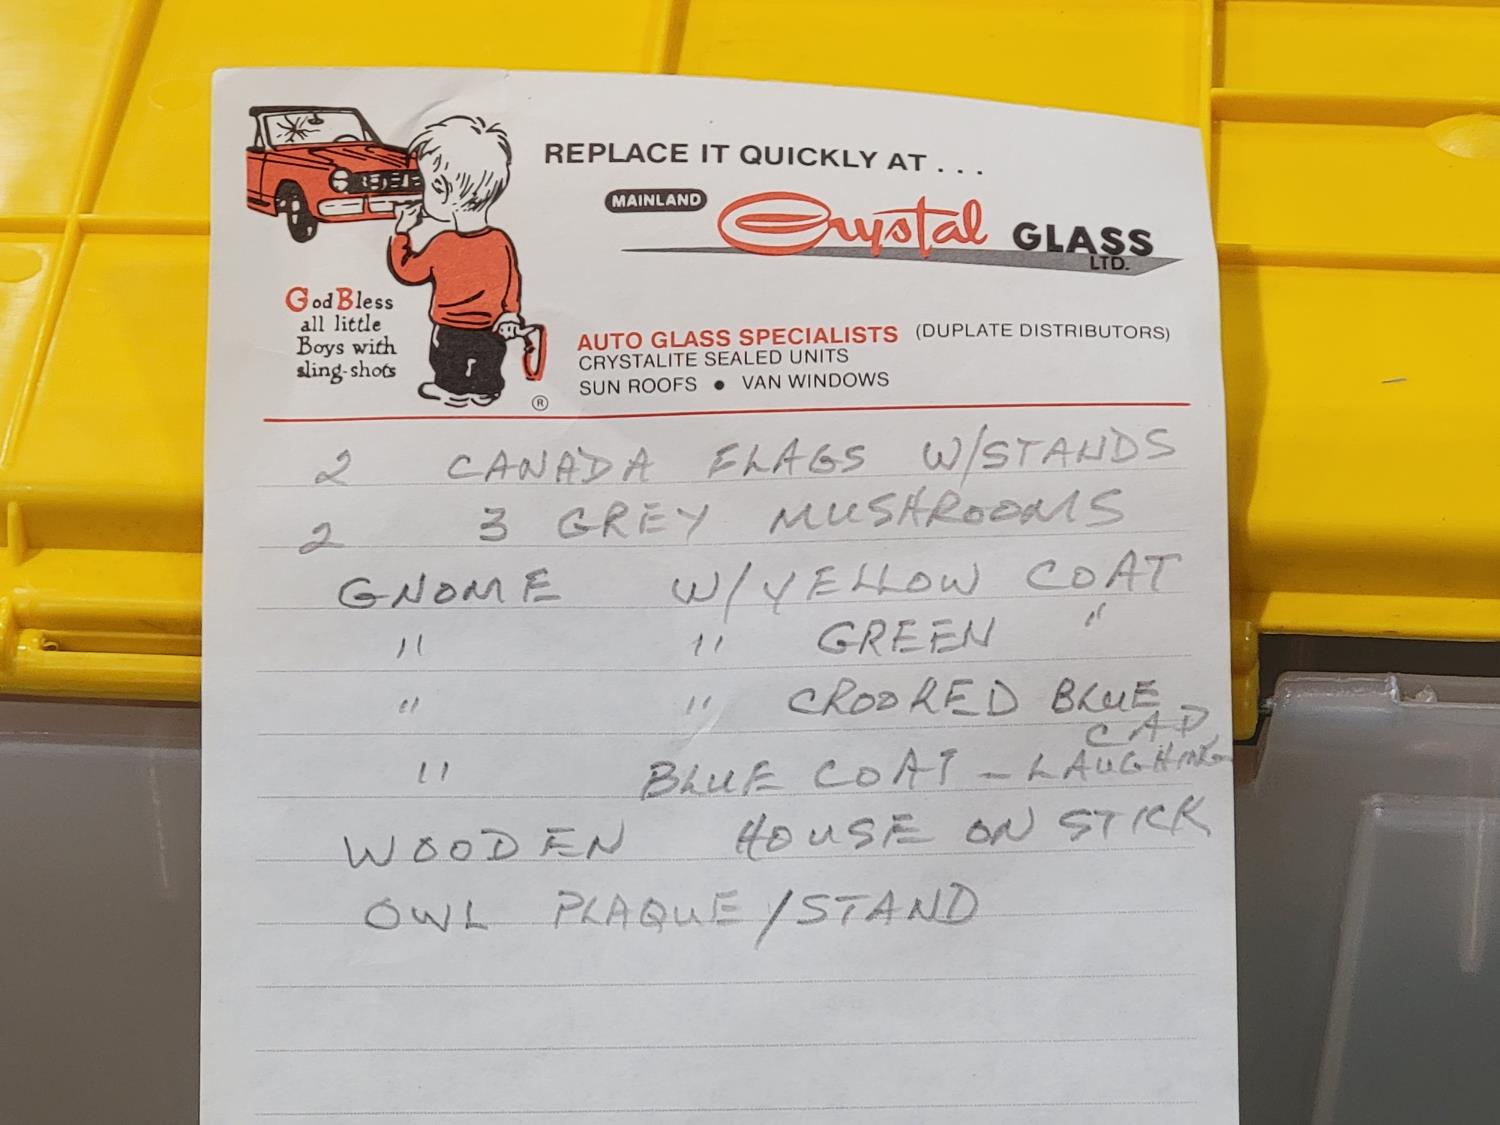 REPLACE IT QUICKLY AT . . .
MAINLAND Crystal GLASS LTD.
God Bless
all little
Boys with
sling-shots
®
AUTO GLASS SPECIALISTS (DUPLATE DISTRIBUTORS)
CRYSTALITE SEALED UNITS
SUN ROOFS • VAN WINDOWS
2 CANADA FLAGS W/STANDS
2 3 GREY MUSHROOMS
GNOME W/YELLOW COAT
" " GREEN "
" " CROOKED BLUE
CAP
" BLUE COAT - LAUGHING
WOODEN HOUSE ON STICK
OWL PLAQUE/STAND